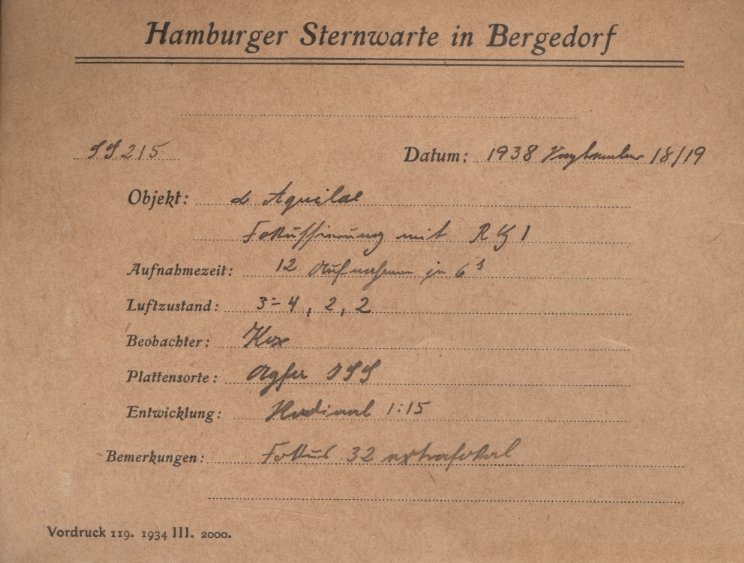 Hamburger Sternwarte in Bergedorf
SS 215 Datum: 1938 September 18/19
Objekt: α Aquilae
Fokussierung mit RG1
Aufnahmezeit: 12 Aufnahmen je 6ˢ
Luftzustand: 3-4, 2, 2
Beobachter:
Plattensorte: Agfa ISS
Entwicklung: Rodinal 1:15
Bemerkungen: Fokus 32 extrafokal
Vordruck 119. 1934 III. 2000.